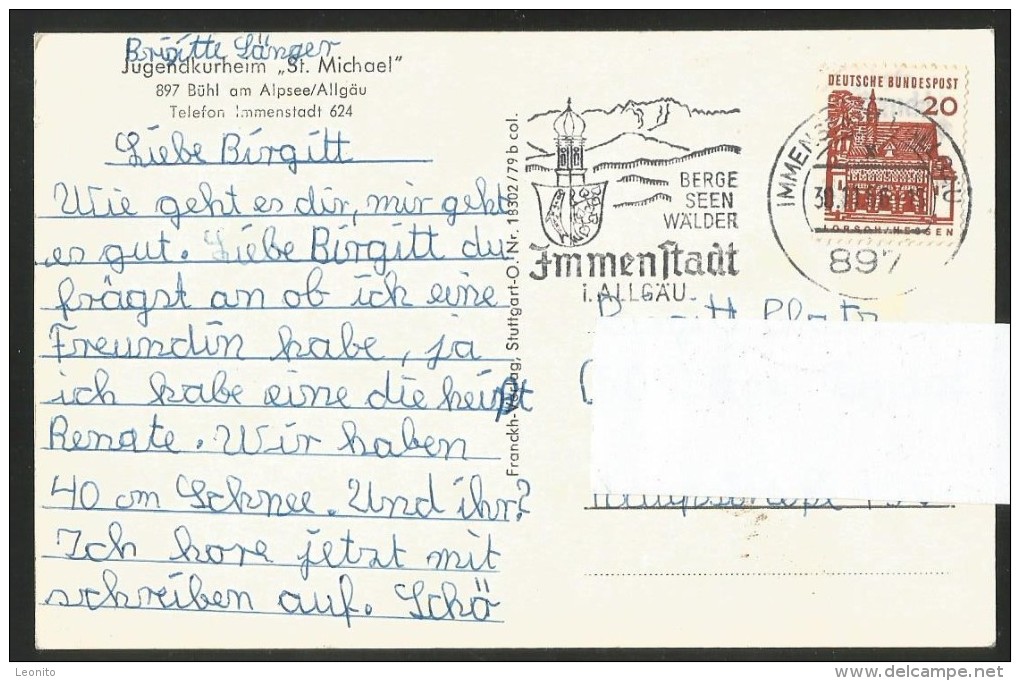 Brigitte Länger
Jugendkurheim „St. Michael"
897 Bühl am Alpsee/Allgäu
Telefon Immenstadt 624
Liebe Birgitt
Wie geht es dir, mir geht
es gut. Liebe Birgitt du
frägst an ob ich eine
Freundin habe, ja
ich habe eine die heißt
Renate. Wir haben
40 cm Schnee. Und ihr?
Ich höre jetzt mit
schreiben auf. Schö
Franckh-Verlag, Stuttgart-O. Nr. 18302/79 b col.
BERGE
SEEN
WÄLDER
Immenstadt
i. ALLGÄU
DEUTSCHE BUNDESPOST
20
LORSCH/HESSEN
897
Leonito
www.delcampe.net